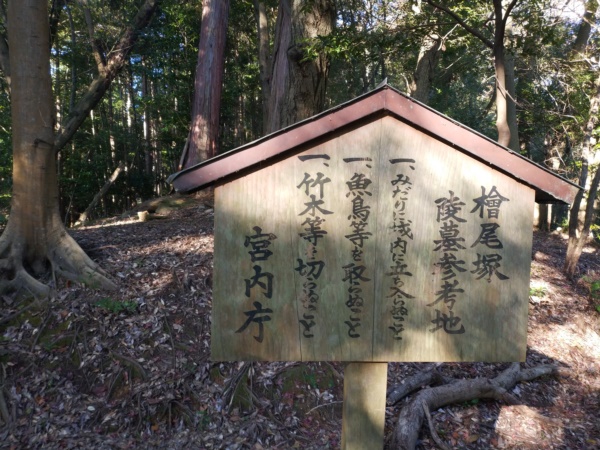 檜尾塚
陵墓参考地
一、みだりに域内に立ち入らぬこと
一、魚鳥等を取らぬこと
一、竹木等を切らぬこと
宮内庁